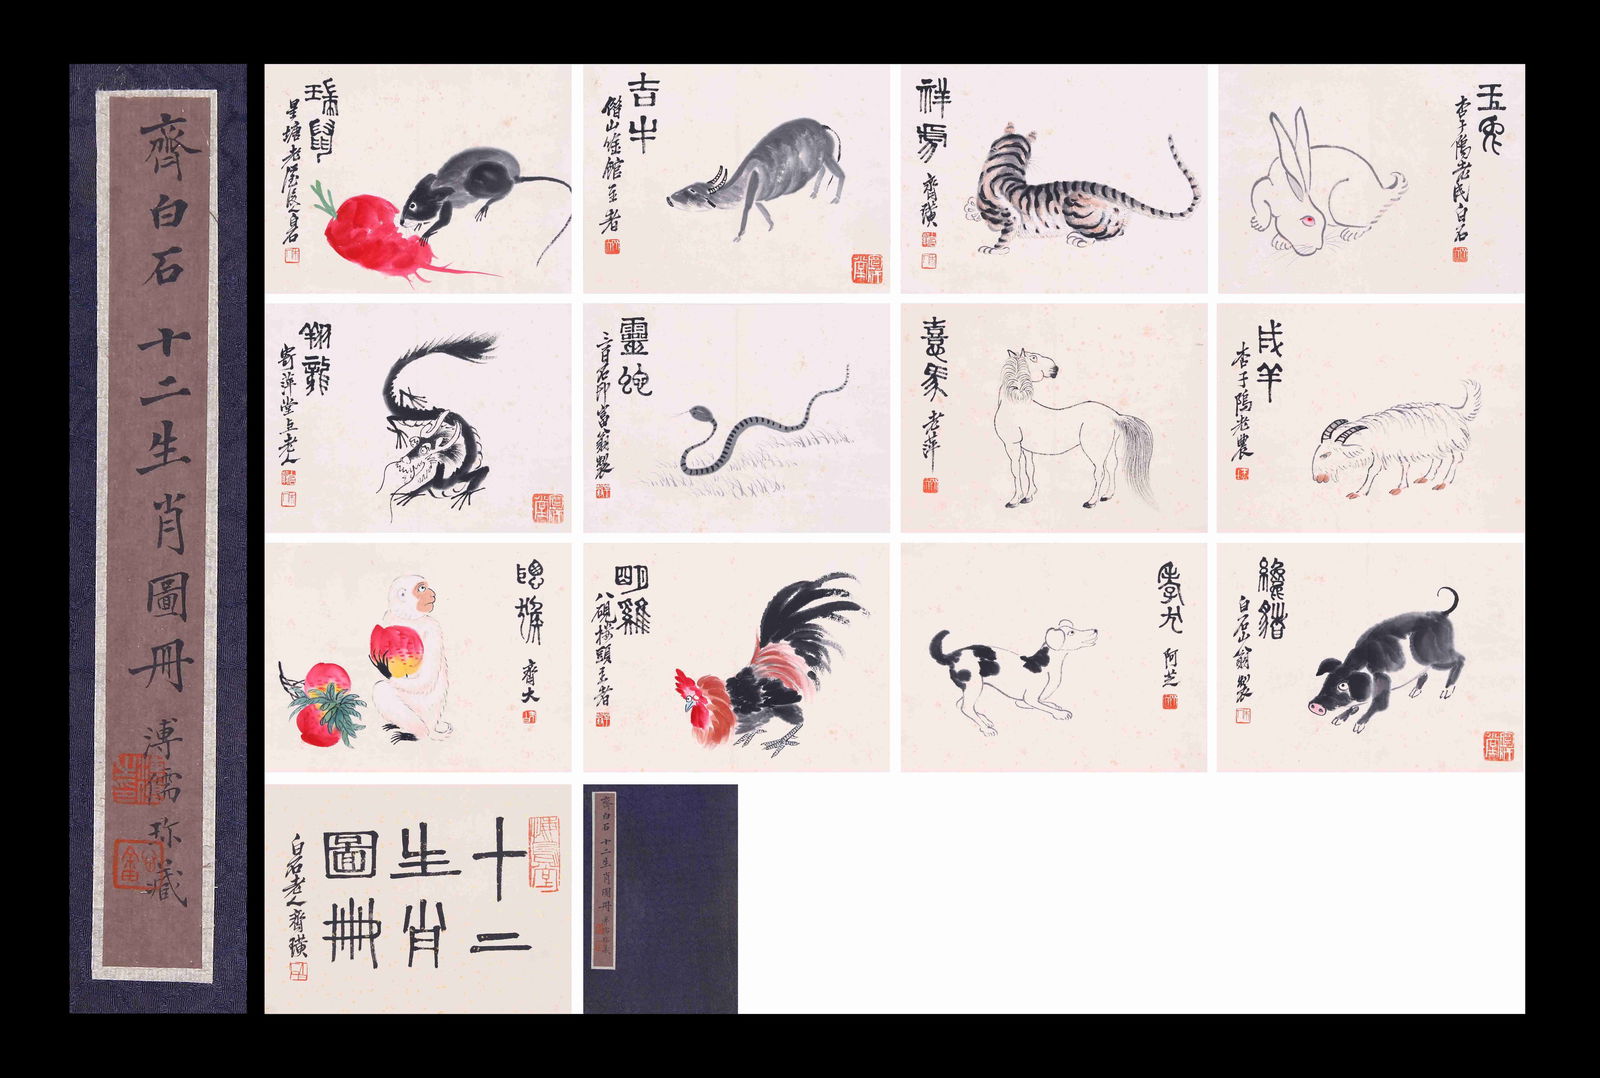 齊白石 十二生肖圖冊 溥儒珍藏
瑞鼠
星塘老屋後人白石
吉牛
借山吟館主者
祥虎
齊璜
玉兔
杏子隖老民白石
翔龍
寄萍堂上老人
靈蛇
三百石印富翁製
喜馬
老萍
成羊
杏子隖老農
聰猴
齊大
明雞
八硯樓頭主者
孝犬
阿芝
白石山翁製
十二
生肖
圖冊
白石老人齊璜
齊白石 十二生肖圖冊